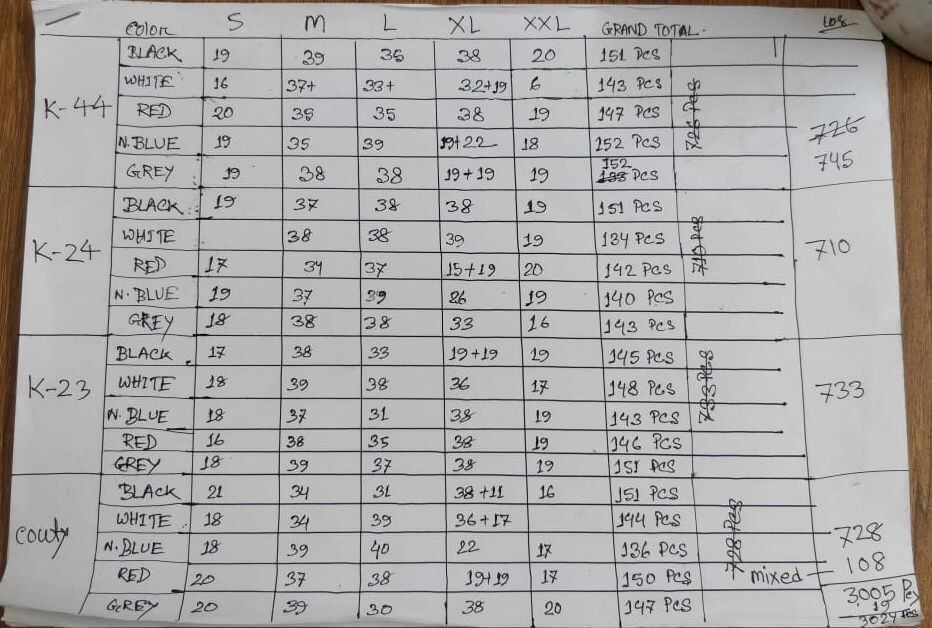 COLOR S M L XL XXL GRAND TOTAL. 108
K-44 BLACK 19 39 35 38 20 151 PCS
WHITE 16 37+ 33+ 32+19 6 143 PCS
RED 20 35 35 38 19 147 PCS
N.BLUE 19 35 39 19+22 18 152 PCS
GREY 19 38 38 19+19 19 152 138 PCS
726 PCS
726
745
K-24 BLACK 19 37 38 38 19 151 PCS
WHITE 38 38 39 19 134 PCS
RED 17 34 37 15+19 20 142 PCS
N.BLUE 19 37 39 26 19 140 PCS
GREY 18 38 38 33 16 143 PCS
710 PCS
710
K-23 BLACK 17 38 33 19+19 19 145 PCS
WHITE 18 39 38 36 17 148 PCS
N.BLUE 18 37 31 38 19 143 PCS
RED 16 38 35 38 19 146 PCS
GREY 18 39 37 38 19 151 PCS
733 PCS
733
couty BLACK 21 34 31 38+11 16 151 PCS
WHITE 18 34 39 36+17 144 PCS
N.BLUE 18 39 40 22 17 136 PCS
RED 20 37 38 19+19 17 150 PCS
GREY 20 39 30 38 20 147 PCS
728 PCS
728
mixed - 108
3,005 Pcs
19
3024 PCS